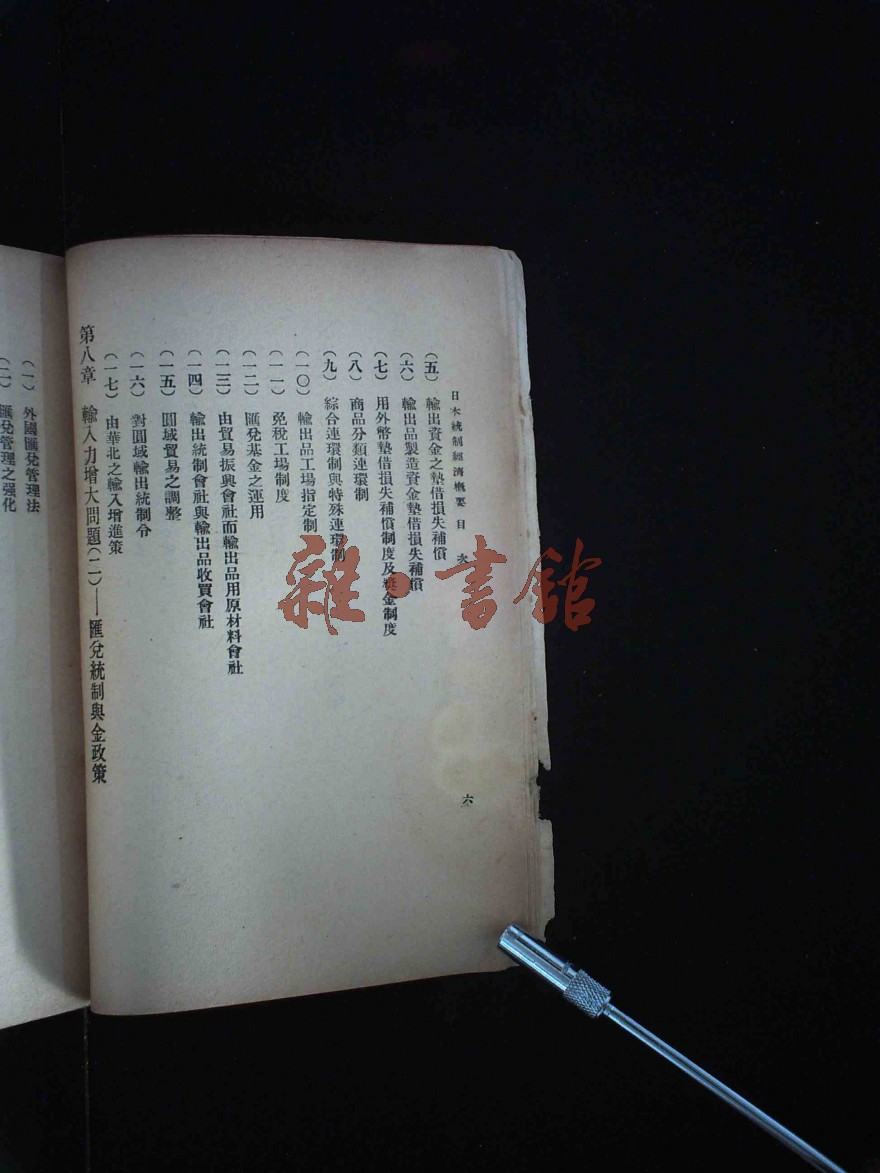 日本統制經濟概要 目次
六
(五) 輸出資金之墊借損失補償
(六) 輸出品製造資金墊借損失補償
(七) 用外幣墊借損失補償制度及獎金制度
(八) 商品分類連環制
(九) 綜合連環制與特殊連環制
(一〇) 輸出品工場指定制
(一一) 免稅工場制度
(一二) 匯兌基金之運用
(一三) 由貿易振興會社而輸出品用原材料會社
(一四) 輸出統制會社與輸出品收買會社
(一五) 圓域貿易之調整
(一六) 對圓域輸出統制令
(一七) 由華北之輸入增進策
第八章 輸入力增大問題(二)——匯兌統制與金政策
(一) 外國匯兌管理法
(二) 匯兌管理之强化
雜·書館